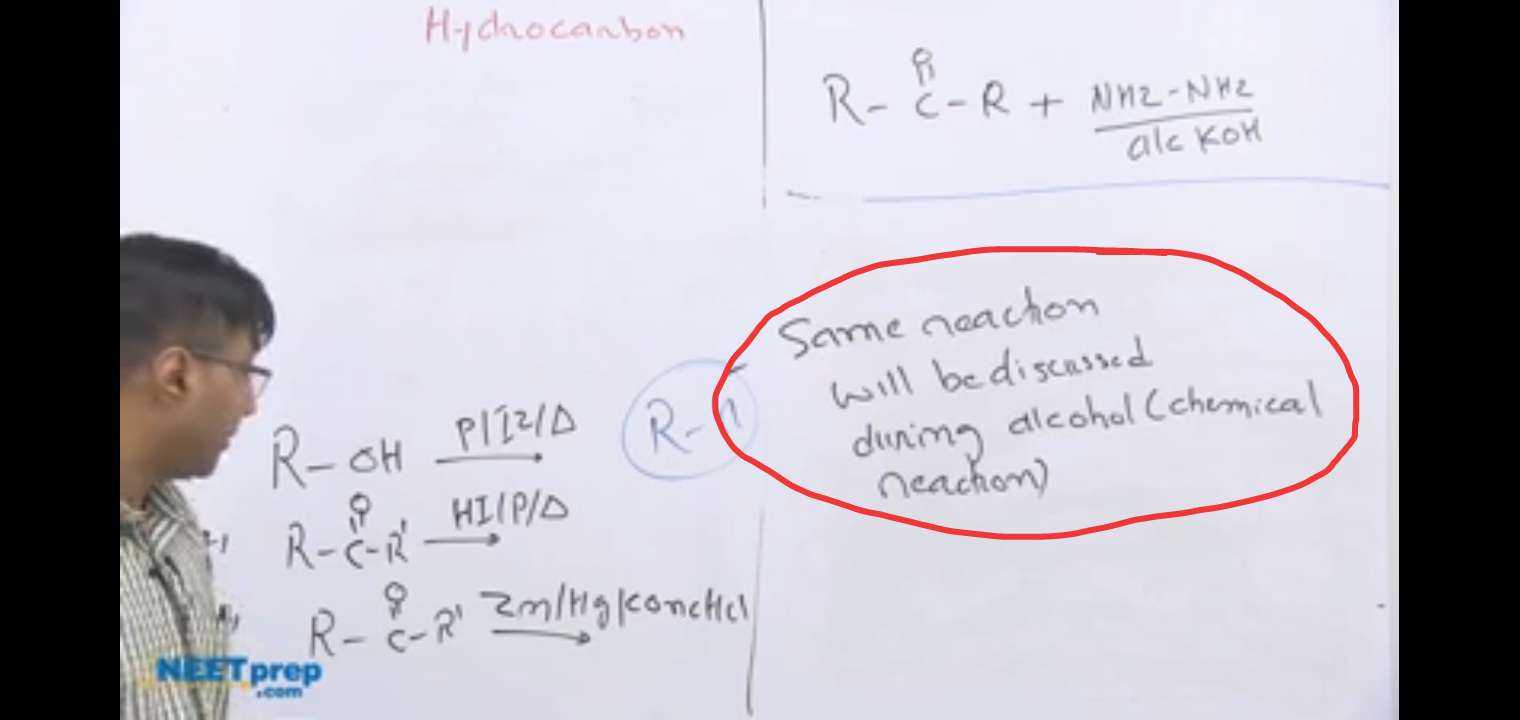 Hydrocarbon
O
R - C - R + NH2 - NH2
alc KOH
Same reaction
will be discussed
during alcohol (chemical
reaction)
R - OH P/I2/Δ
R -
O
R - C - R' HI/P/Δ
O
R - C - R' Zn/Hg/conc HCl
NEETprep
.com